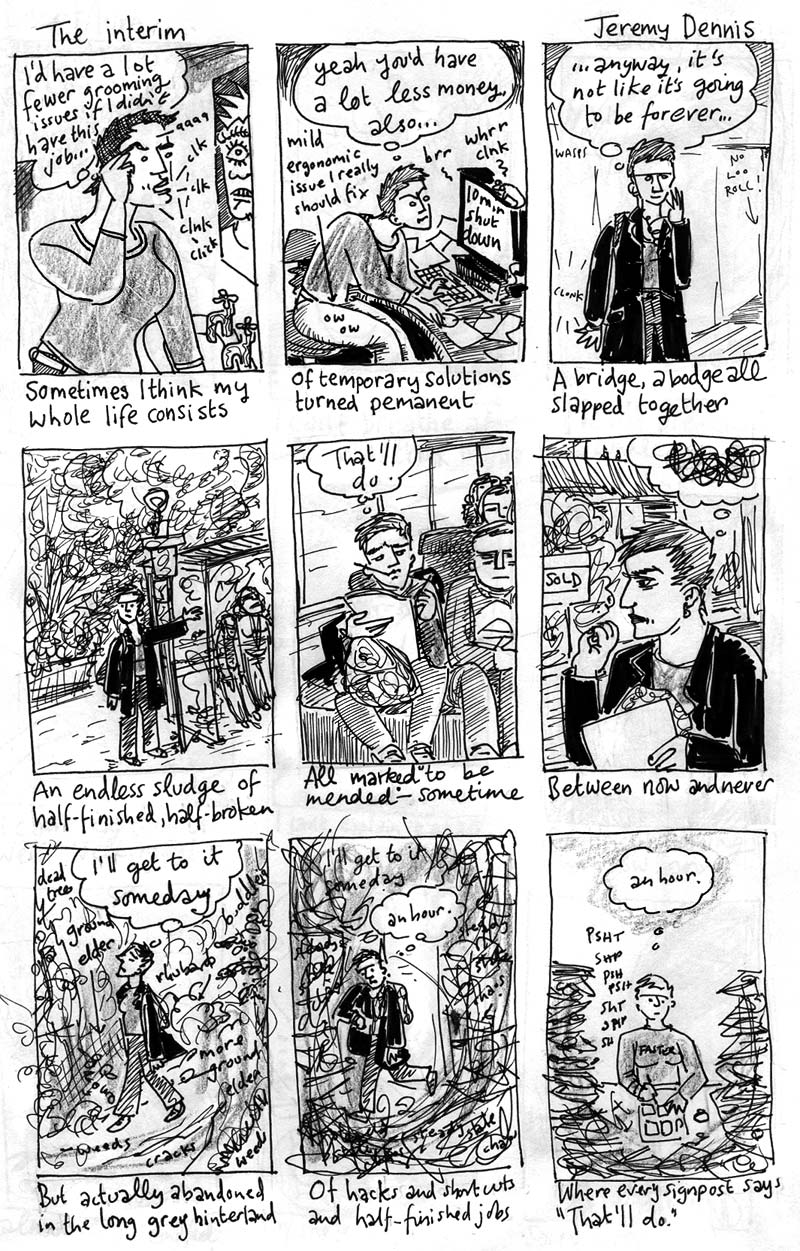 The interim
Jeremy Dennis
I'd have a lot
fewer grooming
issues if I didn't
have this
job...
aggg
clk
clk
clnk
click
Sometimes I think my
whole life consists
yeah you'd have
a lot less money,
also...
mild
ergonomic
issue I really
should fix
brr
whrr
clnk
10 min
shut
down
ow
ow
Of temporary solutions
turned pemanent
...anyway, it's
not like it's going
to be forever...
WASPS
NO
LOO
ROLL!
CLONK
A bridge, a bodge all
slapped together
An endless sludge of
half-finished, half-broken
That'll
do.
All marked "to be
mended" – sometime
SOLD
Between now and never
I'll get to it
someday
dead
trees
ground
elder
buddleia
rhubarb
more
ground
elder
weeds
cracks
weeds
But actually abandoned
in the long grey hinterland
I'll get to it
someday
an hour.
steady
state
Of hacks and short cuts
and half-finished jobs
an hour.
PSHT
SHP
PSH
PSH
SHT
SH
Where every signpost says
"That'll do."